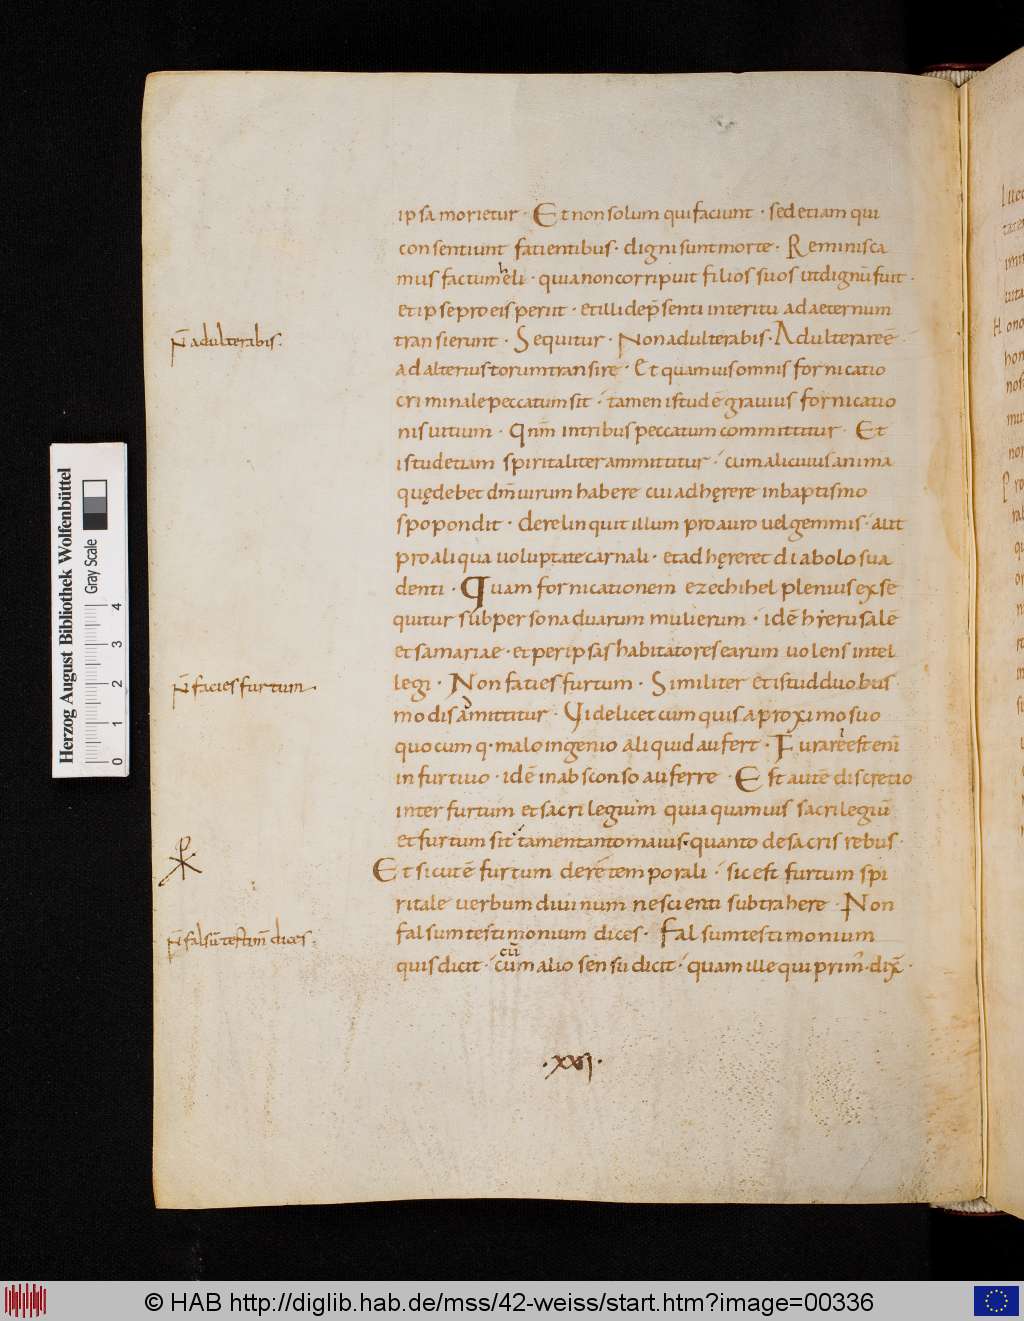 ipsa morietur · Et non solum qui faciunt · sed etiam qui
consentiunt facientibus · digni sunt morte · Reminisca
mus factum heli · quia non corripuit filios suos ut dignū fuit ·
et ipse pro eis periit · et illi de p̄senti interitu ad aeternum
transierunt · Sequitur · Non adulterabis · Adulterare ē ·
N̄ adulterabis :
ad alterius torum transire · Et quamuis omnis fornicatio
criminale peccatum sit · tamen istud ē grauius fornicatio
nis uitium · Qnm̄ in tribus peccatum committitur · Et
istud etiam spiritaliter ammittitur · cum alicuius anima
quę debet dm̄ uirum habere cui adhęrere in baptismo
spopondit · derelinquit illum pro auro uel gemmis · aut
pro aliqua uoluptate carnali · et adhęreret diabolo sua
denti · Quam fornicationem ezechihel plenius exse
quitur sub persona duarum mulierum · idē hierusalē
et samariae · et per ipsas habitatores earum uolens intel
legi · Non faties furtum · Similiter et istud duobus
N̄ facies furtum
modis amittitur · Videlicet cum quis a proximo suo
quocumq · malo ingenio aliquid aufert · Furare est enī
in furtiuo · idē in absconso auferre · Est autē discretio
inter furtum et sacrilegium quia quamuis sacrilegiū
et furtum sit tamen tanto maius · quanto de sacris rebus ·
Et sicut ē furtum de re temporali · sic est furtum spi
ritale uerbum diuinum nescienti subtrahere · Non
falsum testimonium dices · Falsum testimonium
N̄ falsū testim̄ dices :
cū
quis dicit · cum alio sensu dicit · quam ille qui prim̄ · dix̄ ·
· xxvi ·
Herzog August Bibliothek Wolfenbüttel
Gray Scale
0 1 2 3 4
© HAB http://diglib.hab.de/mss/42-weiss/start.htm?image=00336